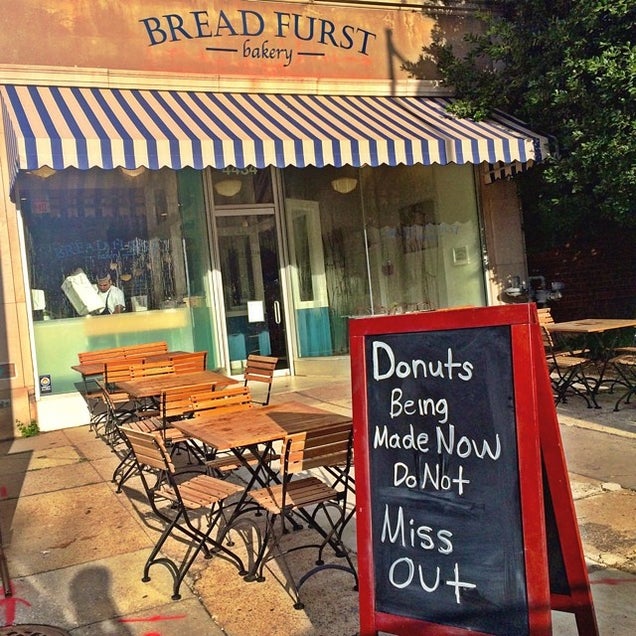 BREAD FURST
bakery
4434
BREAD FURST
Donuts
Being
Made Now
Do Not
Miss
Out